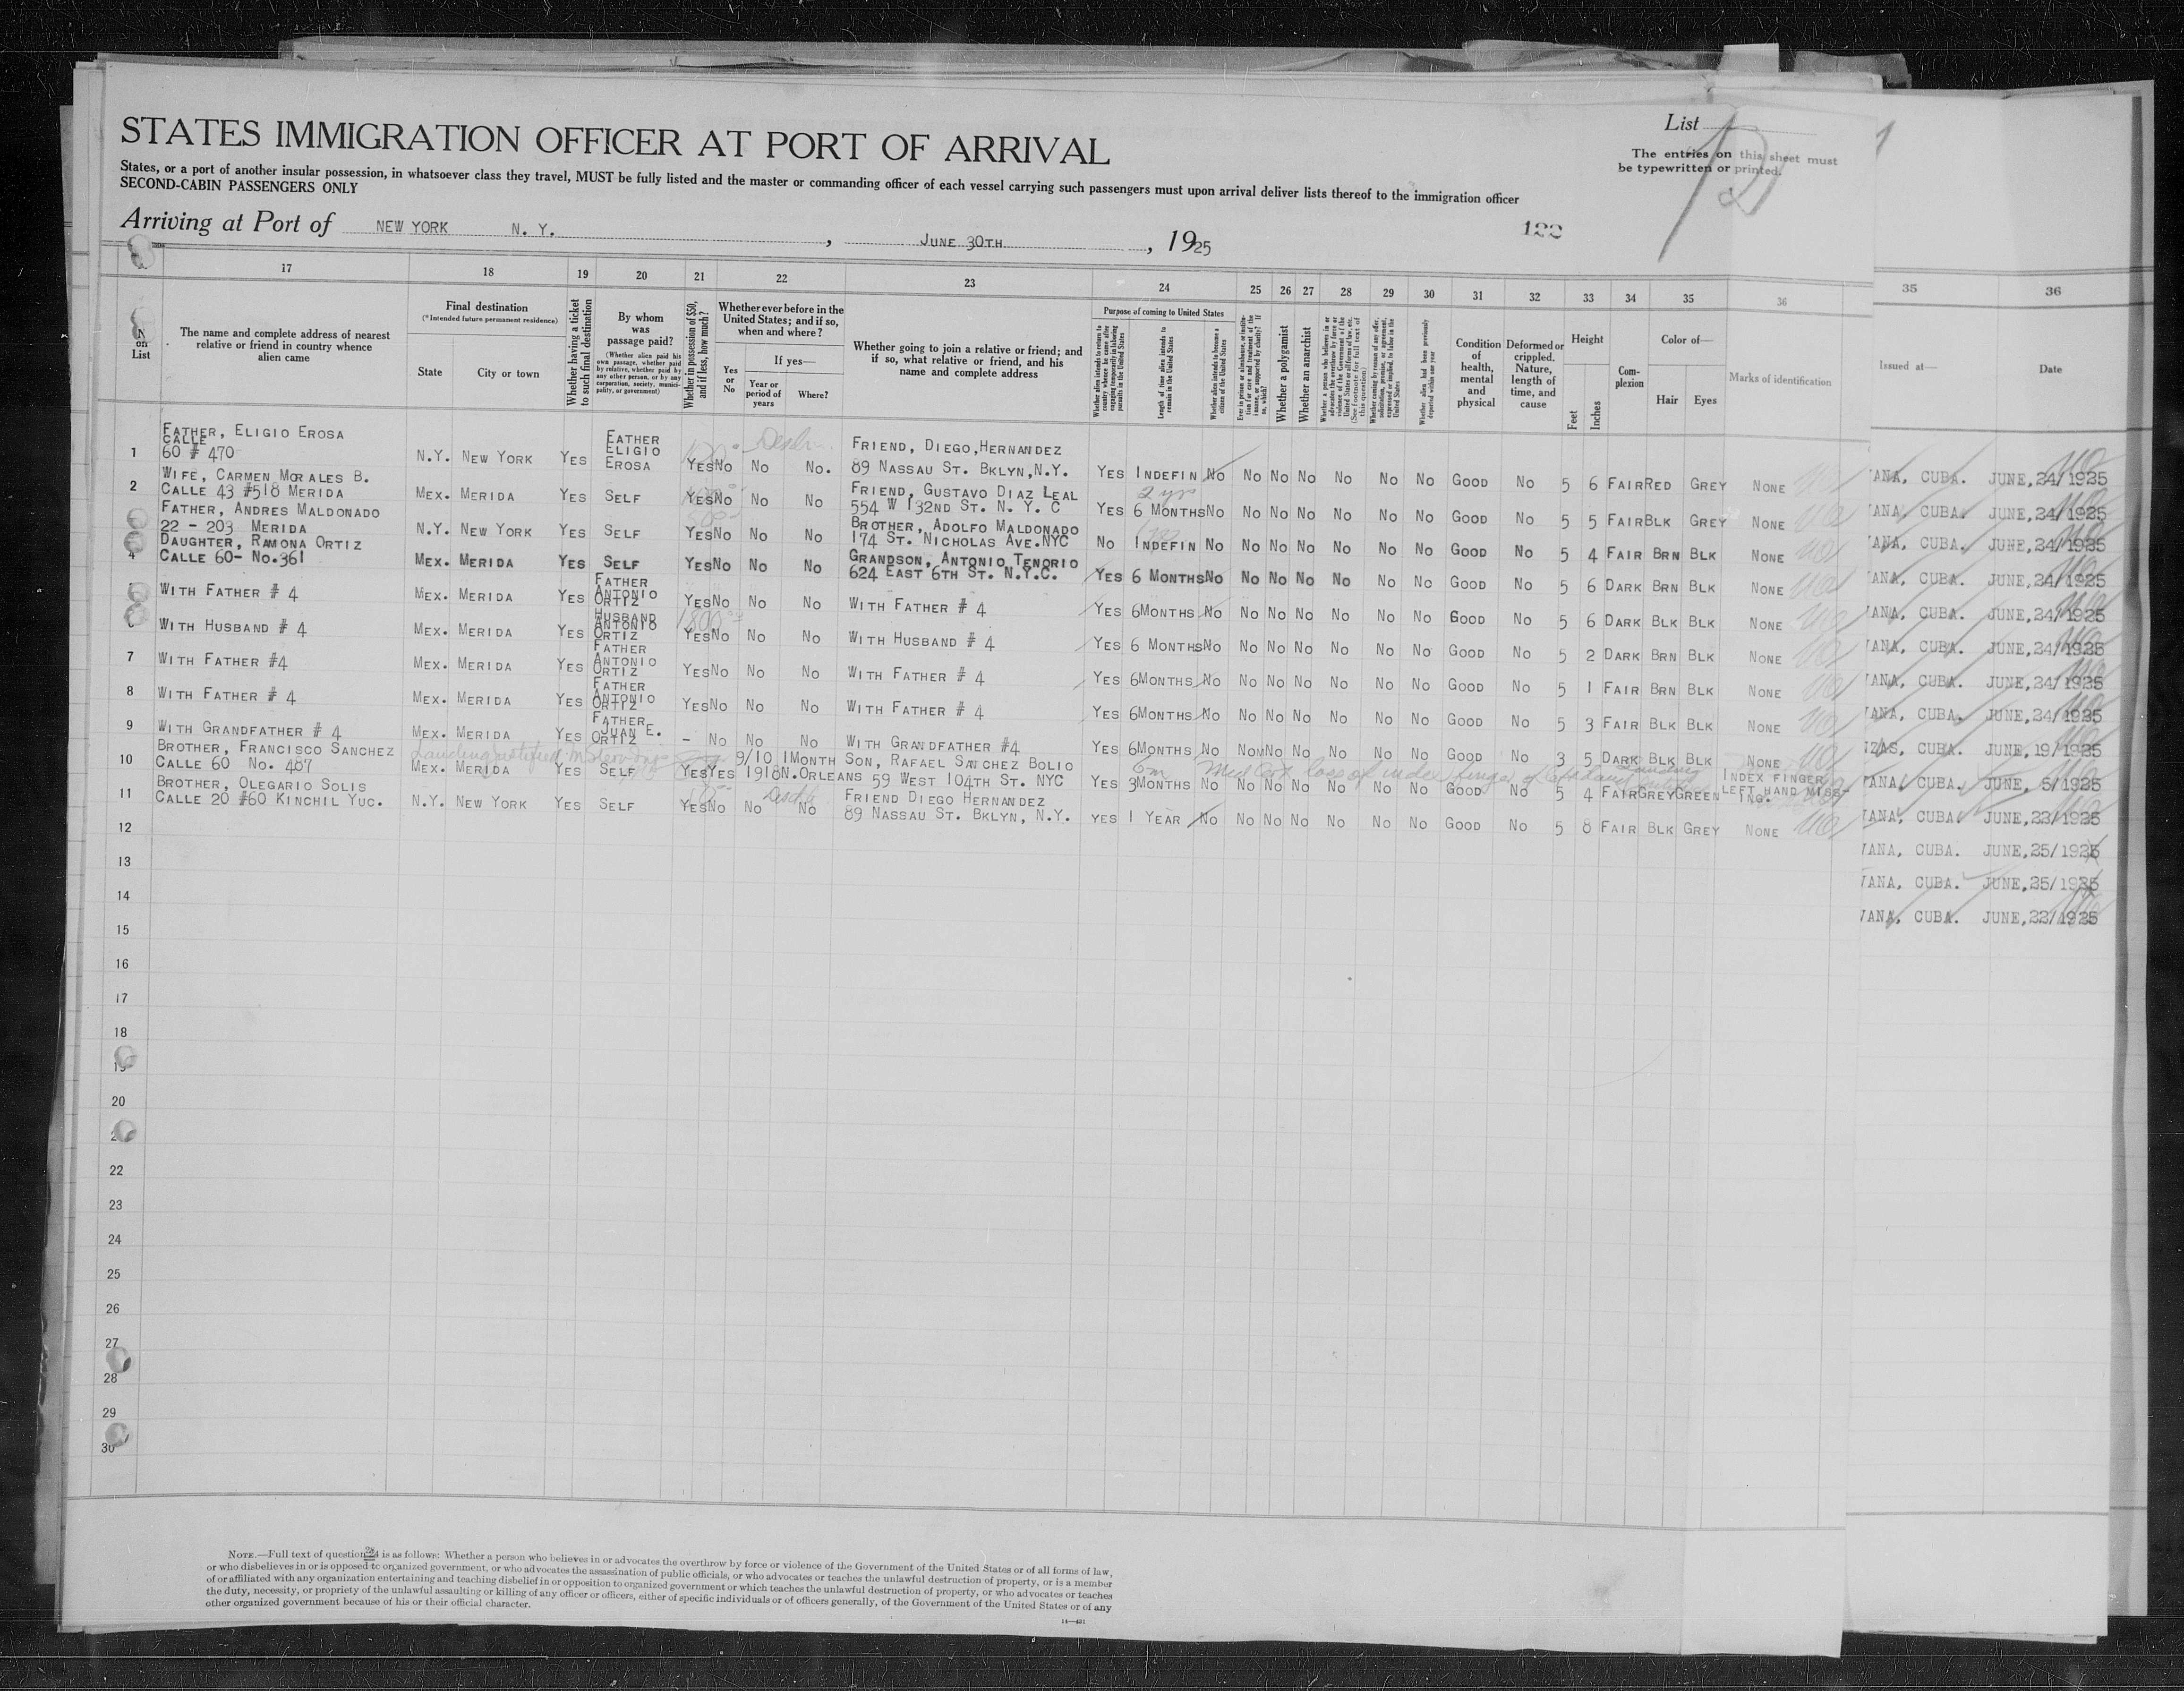 STATES IMMIGRATION OFFICER AT PORT OF ARRIVAL
List
The entries on this sheet must
be typewritten or printed.
States, or a port of another insular possession, in whatsoever class they travel, MUST be fully listed and the master or commanding officer of each vessel carrying such passengers must upon arrival deliver lists thereof to the immigration officer
SECOND-CABIN PASSENGERS ONLY
Arriving at Port of NEW YORK N. Y. , JUNE 30TH , 1925
122
17 18 19 20 21 22 23 24 25 26 27 28 29 30 31 32 33 34 35 36 35 36
on
List
The name and complete address of nearest
relative or friend in country whence
alien came
Final destination
(*Intended future permanent residence)
State City or town
Whether having a ticket
to such final destination
By whom
was
passage paid?
(Whether alien paid his
own passage, whether paid
by relative, whether paid by
any other person, or by any
corporation, society, munici-
pality, or government)
Whether in possession of $50,
and if less, how much?
Whether ever before in the
United States; and if so,
when and where?
If yes—
Yes
or
No
Year or
period of
years
Where?
Whether going to join a relative or friend; and
if so, what relative or friend, and his
name and complete address
Purpose of coming to United States
Whether alien intends to return to
country whence he came after
engaging temporarily in laboring
pursuits in the United States
Length of time alien intends to
remain in the United States
Whether alien intends to become a
citizen of the United States
Ever in prison or almshouse, or institu-
tion for care and treatment of the
insane, or supported by charity? If
so, which?
Whether a polygamist
Whether an anarchist
Whether a person who believes in or
advocates the overthrow by force or
violence of the Government of the
United States or all forms of law, etc.
(See footnote for full text of
this question)
Whether coming by reason of any offer,
solicitation, promise, or agreement,
expressed or implied, to labor in the
United States
Whether alien had been previously
deported within one year
Condition
of
health,
mental
and
physical
Deformed or
crippled.
Nature,
length of
time, and
cause
Height
Feet Inches
Com-
plexion
Color of—
Hair Eyes
Marks of identification
Issued at— Date
FATHER, ELIGIO EROSA
CALLE
1 60 # 470 N.Y. NEW YORK YES FATHER ELIGIO EROSA YES NO NO NO. FRIEND, DIEGO, HERNANDEZ
89 NASSAU ST. BKLYN, N.Y. YES INDEFIN NO NO NO NO NO NO NO GOOD NO 5 6 FAIR RED GREY NONE
WIFE, CARMEN MORALES B.
2 CALLE 43 #518 MERIDA MEX. MERIDA YES SELF YES NO NO NO FRIEND, GUSTAVO DIAZ LEAL
2 yrs
554 W 132ND ST. N. Y. C YES 6 MONTHS NO NO NO NO NO NO NO GOOD NO 5 5 FAIR BLK GREY NONE
FATHER, ANDRES MALDONADO
22 - 203 MERIDA N.Y. NEW YORK YES SELF YES NO NO NO BROTHER, ADOLFO MALDONADO
174 ST. NICHOLAS AVE. NYC NO INDEFIN NO NO NO NO NO NO NO GOOD NO 5 4 FAIR BRN BLK NONE
DAUGHTER, RAMONA ORTIZ
4 CALLE 60- NO. 361 MEX. MERIDA YES SELF YES NO NO NO GRANDSON, ANTONIO TENORIO
624 EAST 6TH ST. N.Y.C. YES 6 MONTHS NO NO NO NO NO NO NO GOOD NO 5 6 DARK BRN BLK NONE
WITH FATHER # 4 MEX. MERIDA YES FATHER ANTONIO ORTIZ YES NO NO NO WITH FATHER # 4 YES 6MONTHS NO NO NO NO NO NO NO GOOD NO 5 6 DARK BLK BLK NONE
WITH HUSBAND # 4 MEX. MERIDA YES HUSBAND ANTONIO ORTIZ YES NO NO NO WITH HUSBAND # 4 YES 6 MONTHS NO NO NO NO NO NO NO GOOD NO 5 2 DARK BRN BLK NONE
7 WITH FATHER #4 MEX. MERIDA YES FATHER ANTONIO ORTIZ YES NO NO NO WITH FATHER # 4 YES 6MONTHS NO NO NO NO NO NO NO GOOD NO 5 1 FAIR BRN BLK NONE
8 WITH FATHER # 4 MEX. MERIDA YES FATHER ANTONIO ORTIZ YES NO NO NO WITH FATHER # 4 YES 6MONTHS NO NO NO NO NO NO NO GOOD NO 5 3 FAIR BLK BLK NONE
9 WITH GRANDFATHER # 4 MEX. MERIDA YES FATHER, JUAN E. ORTIZ - NO NO NO WITH GRANDFATHER #4 YES 6MONTHS NO NO NO NO NO NO NO GOOD NO 3 5 DARK BLK BLK NONE
BROTHER, FRANCISCO SANCHEZ 9/10 1MONTH SON, RAFAEL SANCHEZ BOLIO
loss of index finger of left hand
10 CALLE 60 NO. 487 MEX. MERIDA YES SELF YES YES 1918 N. ORLEANS 59 WEST 104TH ST. NYC YES 3MONTHS NO NO NO NO NO NO NO GOOD NO 5 4 FAIR GREY GREEN INDEX FINGER
LEFT HAND MISS-
ING.
BROTHER, OLEGARIO SOLIS
11 CALLE 20 #60 KINCHIL YUC. N.Y. NEW YORK YES SELF YES NO NO NO FRIEND DIEGO HERNANDEZ
89 NASSAU ST. BKLYN, N.Y. YES 1 YEAR NO NO NO NO NO NO NO GOOD NO 5 8 FAIR BLK GREY NONE
12
13
14
15
16
17
18
19
20
22
23
24
25
26
27
28
29
30
VANA, CUBA. JUNE, 24/1925
VANA, CUBA. JUNE, 24/1925
VANA, CUBA. JUNE, 24/1925
VANA, CUBA. JUNE, 24/1925
VANA, CUBA. JUNE, 24/1925
VANA, CUBA. JUNE, 24/1925
VANA, CUBA. JUNE, 24/1925
VANA, CUBA. JUNE, 24/1925
NZAS, CUBA. JUNE, 19/1925
VANA, CUBA. JUNE, 5/1925
VANA, CUBA. JUNE, 23/1925
VANA, CUBA. JUNE, 25/1925
VANA, CUBA. JUNE, 25/1925
VANA, CUBA. JUNE, 22/1925
NOTE.—Full text of question 28 is as follows: Whether a person who believes in or advocates the overthrow by force or violence of the Government of the United States or of all forms of law,
or who disbelieves in or is opposed to organized government, or who advocates the assassination of public officials, or who advocates or teaches the unlawful destruction of property, or is a member
of or affiliated with any organization entertaining and teaching disbelief in or opposition to organized government or which teaches the unlawful destruction of property, or who advocates or teaches
the duty, necessity, or propriety of the unlawful assaulting or killing of any officer or officers, either of specific individuals or of officers generally, of the Government of the United States or of any
other organized government because of his or their official character.
14—431